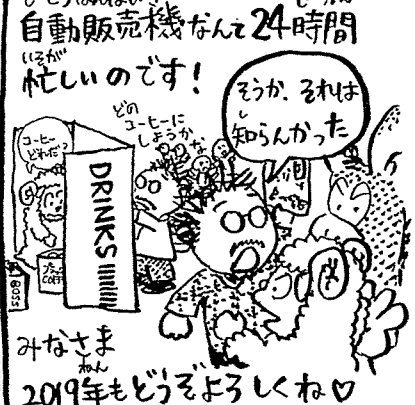 自動販売機なんて24時間
忙しいのです！
そうか、それは
知らんかった
どの
コーヒーに
しようかな
コーヒー
どれだっ
DRINKS
BOSS
みなさま
2019年もどうぞよろしくね♡